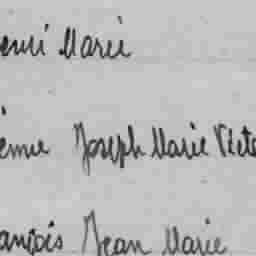 enri Marie
émie Joseph Marie Victo
ançois Jean Marie